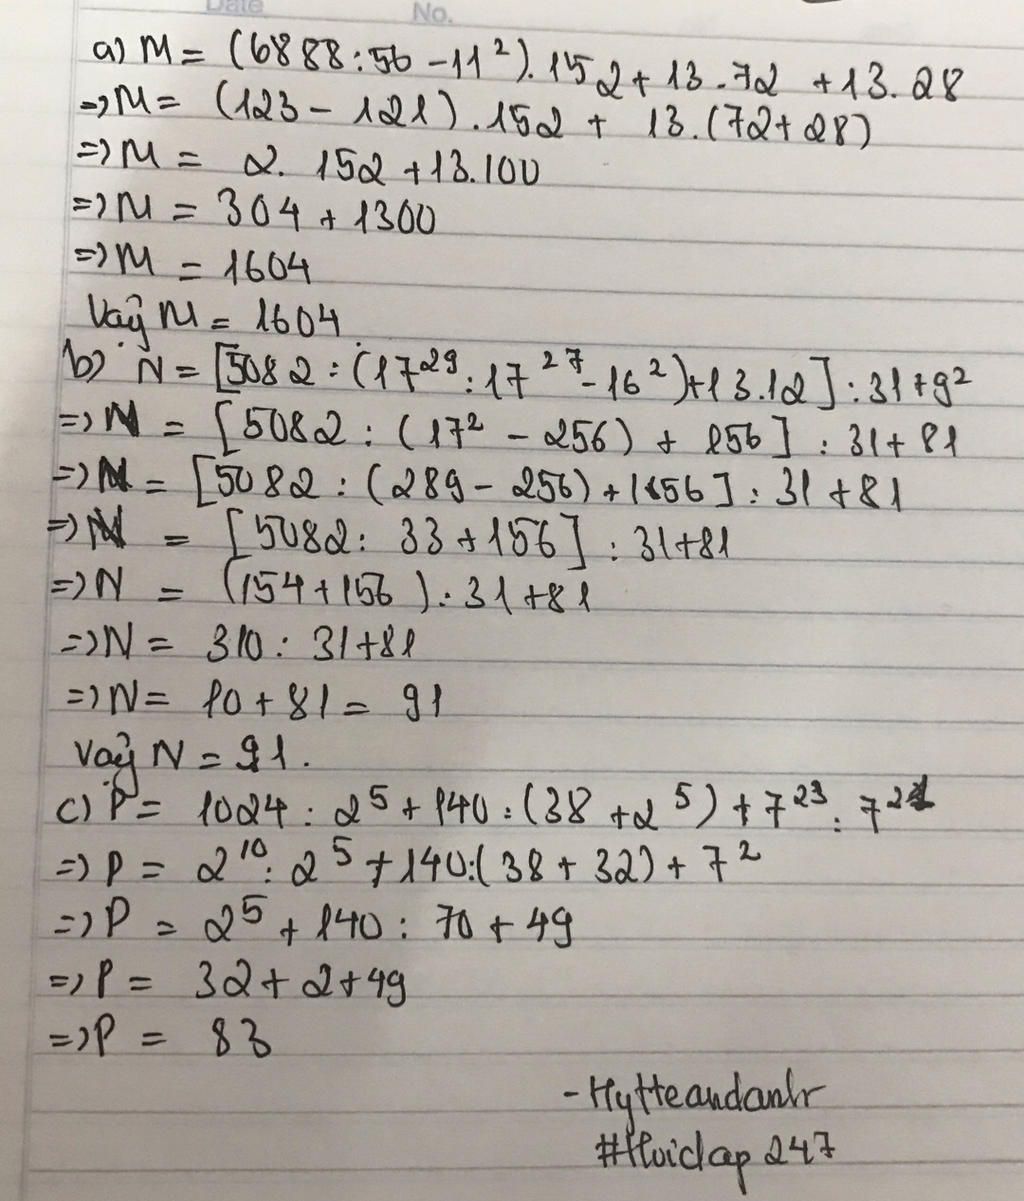 Date No.
a) M = (6888 : 56 - 11²). 152 + 13.72 + 13.28
=> M = (123 - 121).152 + 13.(72+28)
=> M = 2. 152 + 13.100
=> M = 304 + 1300
=> M = 1604
Vậy M = 1604
b) N = [5082 : (17²⁹ : 17²⁷ - 16²) + 13.12] : 31 + 9²
=> N = [5082 : (17² - 256) + 156] : 31 + 81
=> N = [5082 : (289 - 256) + 156] : 31 + 81
=> N = [5082 : 33 + 156] : 31 + 81
=> N = (154 + 156) : 31 + 81
=> N = 310 : 31 + 81
=> N = 10 + 81 = 91
Vậy N = 91.
c) P = 1024 : 2⁵ + 140 : (38 + 2⁵) + 7²³ : 7²¹
=> P = 2¹⁰ : 2⁵ + 140 : (38 + 32) + 7²
=> P = 2⁵ + 140 : 70 + 49
=> P = 32 + 2 + 49
=> P = 83
#Hoidap247